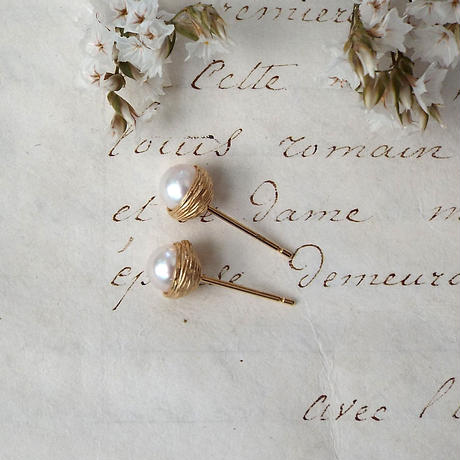 premiers
Cette
Louis romain
et dame
épouse demeura
avec l